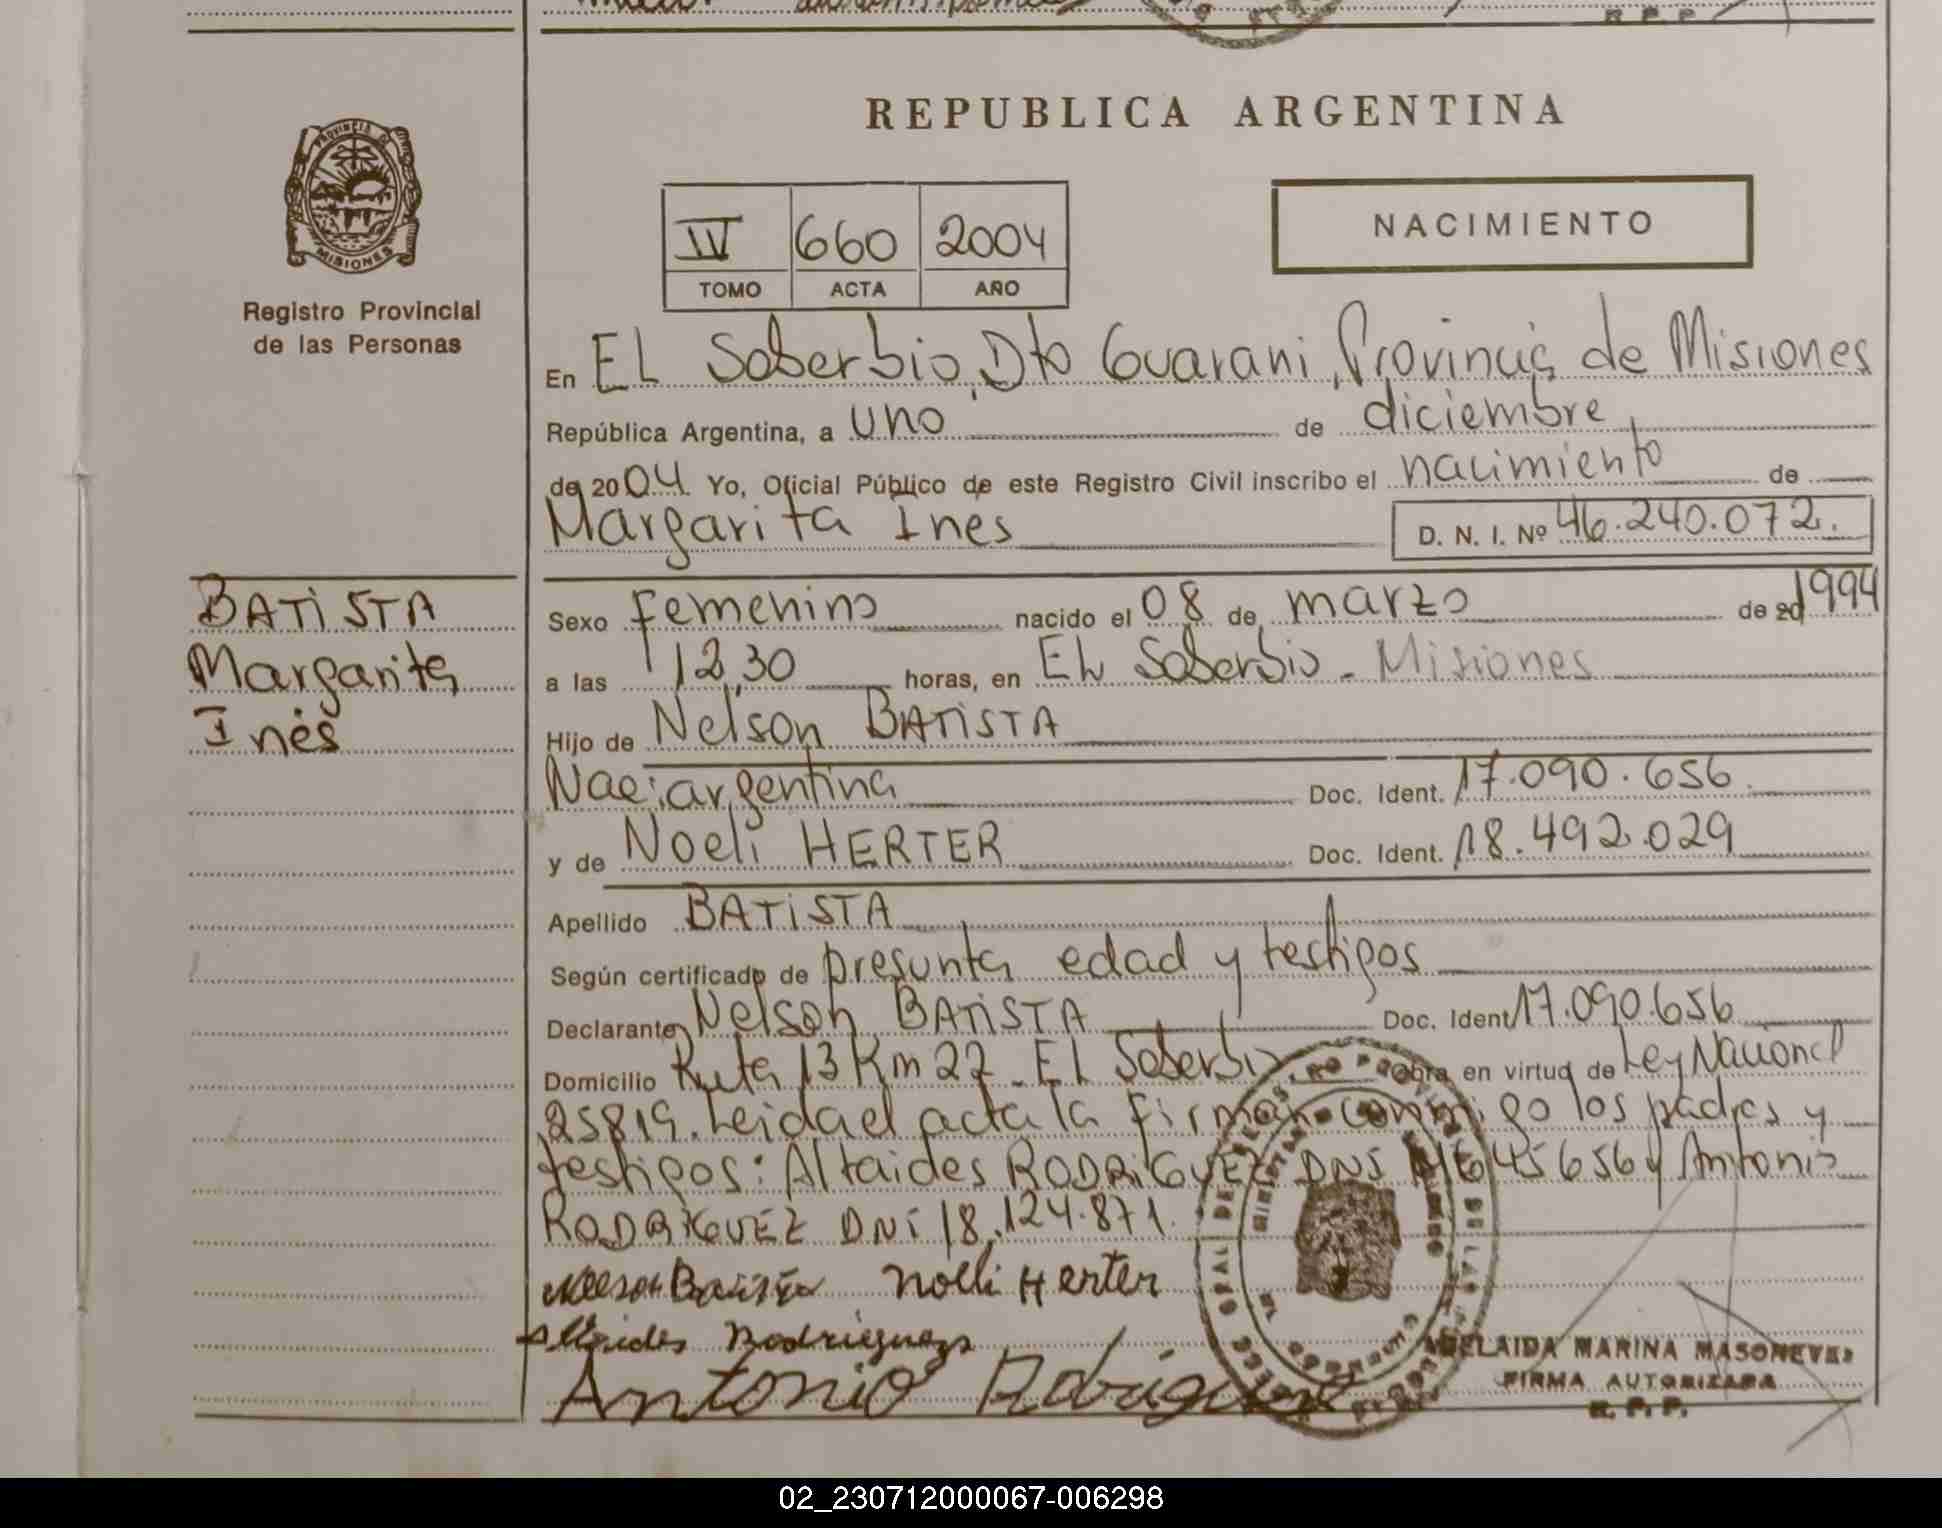 R. P. P.
PROVINCIA DE
MISIONES
Registro Provincial
de las Personas
REPUBLICA ARGENTINA
IV 660 2004
TOMO ACTA AÑO
NACIMIENTO
En EL Soberbio, Dto Guarani, Provincia de Misiones
República Argentina, a uno de diciembre
de 2004 Yo, Oficial Público de este Registro Civil inscribo el nacimiento de
Margarita Ines D. N. I. Nº 46.240.072.
BATISTA
Margarita
Inés
Sexo femenino nacido el 08 de marzo de 20 1994
a las 12,30 horas, en EL Soberbio - Misiones
Hijo de Nelson BATISTA
Nac: argentina Doc. Ident. 17.090.656.
y de Noeli HERTER Doc. Ident. 18.492.029
Apellido BATISTA
Según certificado de presunta edad y testigos
Declarante Nelson BATISTA Doc. Ident 17.090.656
Domicilio Ruta 13 Km 22 - EL Soberbio Obra en virtud de Ley Nacional
25819. Leida el acta la firman conmigo los padres y
testigos: Altaides RODRIGUEZ DNI 645656 y Antonio
RODRIGUEZ DNi 18.124.871.
Nelson Batista Noeli Herter
Altaides Rodrigues
Antonio Rodrigues
ADELAIDA MARINA
FIRMA AUTORIZADA
R. P. P.
02_230712000067-006298